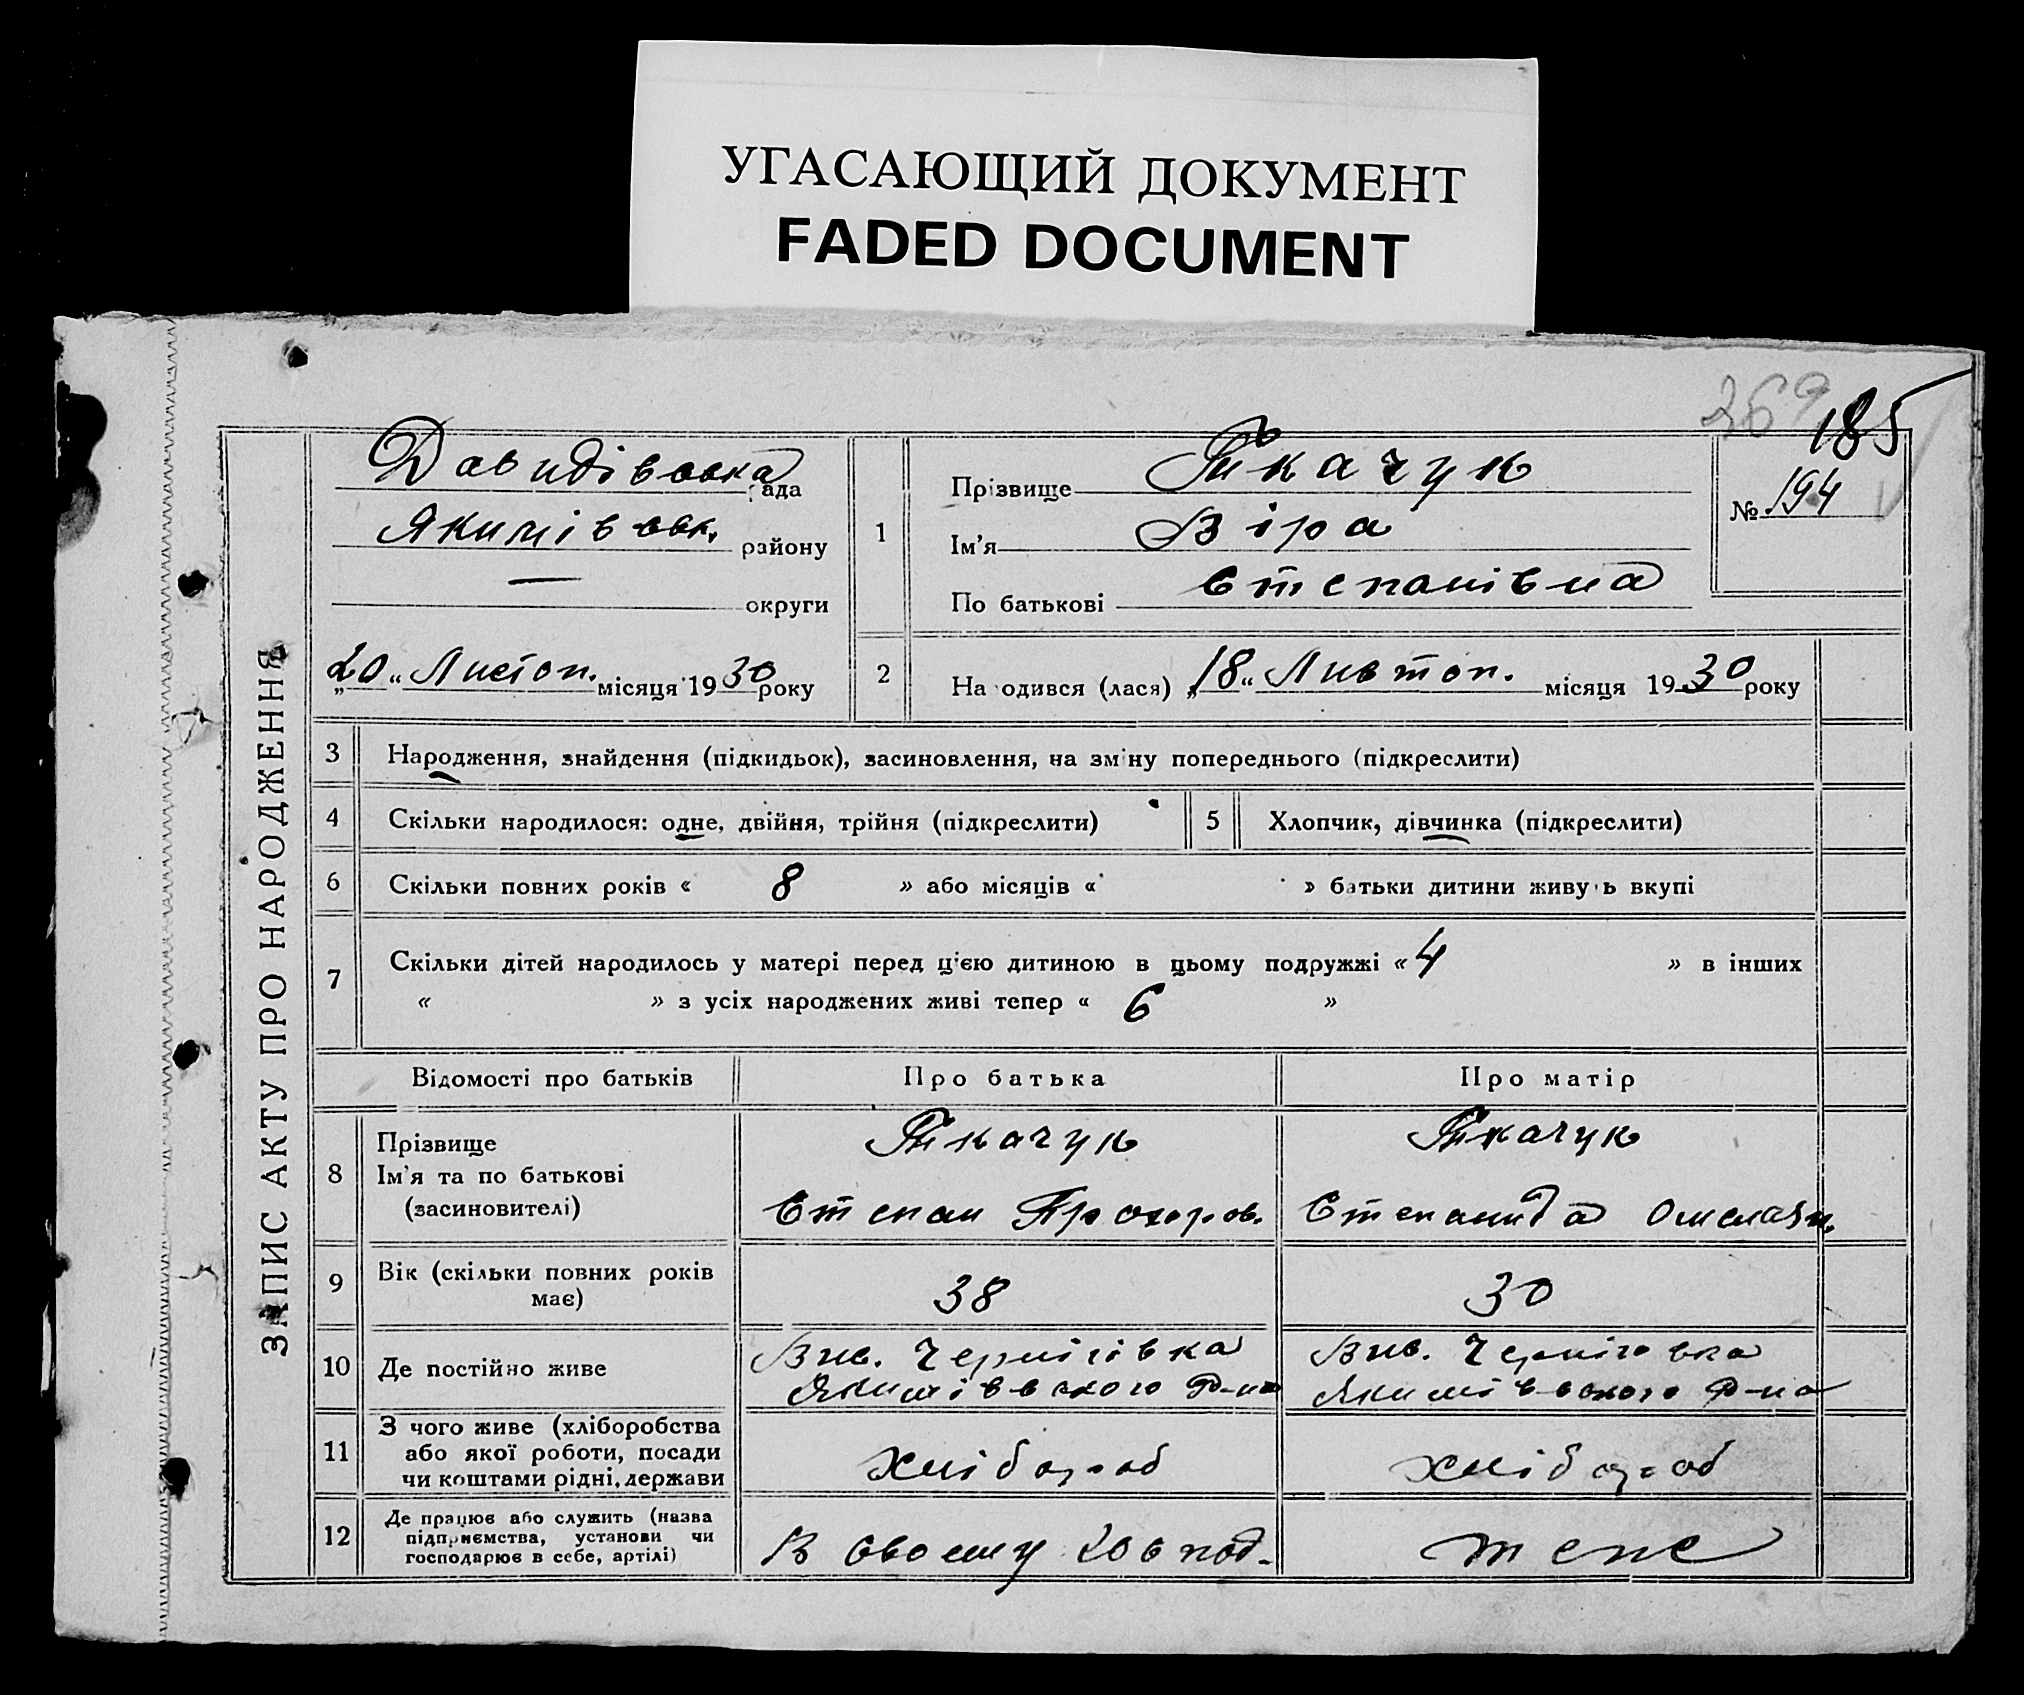 УГАСАЮЩИЙ ДОКУМЕНТ
FADED DOCUMENT
369
185
ЗАПИС АКТУ ПРО НАРОДЖЕННЯ
Давидівська рада
Якимівськ. району
— округи
„20“ Листоп. місяця 1930 року
1
Прізвище Ткачук
Ім'я Віра
По батькові Степанівна
№ 194
2 Народився (лася) „18“ Листоп. місяця 1930 року
3 Народження, знайдення (підкидьок), засиновлення, на зміну попереднього (підкреслити)
4 Скільки народилося: одне, двійня, трійня (підкреслити)
5 Хлопчик, дівчинка (підкреслити)
6 Скільки повних років « 8 » або місяців « » батьки дитини живуть вкупі
7 Скільки дітей народилось у матері перед цією дитиною в цьому подружжі « 4 » в інших
« » з усіх народжених живі тепер « 6 »
Відомості про батьків Про батька Про матір
8 Прізвище
Ім'я та по батькові
(засиновителі)
Ткачук
Степан Прохоров.
Ткачук
Степанида Омелян.
9 Вік (скільки повних років
має)
38
30
10 Де постійно живе
Вис. Чернігівка
Якимівського Р-на
Вис. Чернігівка
Якимівського Р-на
11 З чого живе (хліборобства
або якої роботи, посади
чи коштами рідні, держави
хлібороб
хлібороб
12 Де працює або служить (назва
підприємства, установи чи
господарює в себе, артілі)
В своему господ.
теж